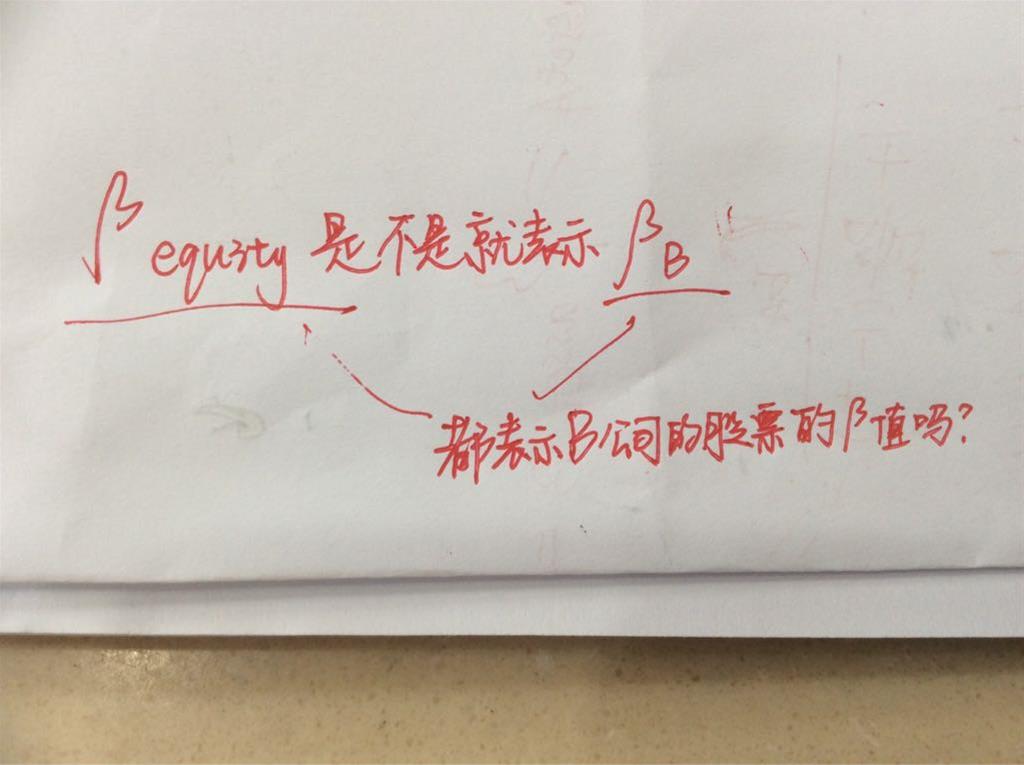 β equity 是不是就表示 β B "
都表示B公司的股票的β值吗?